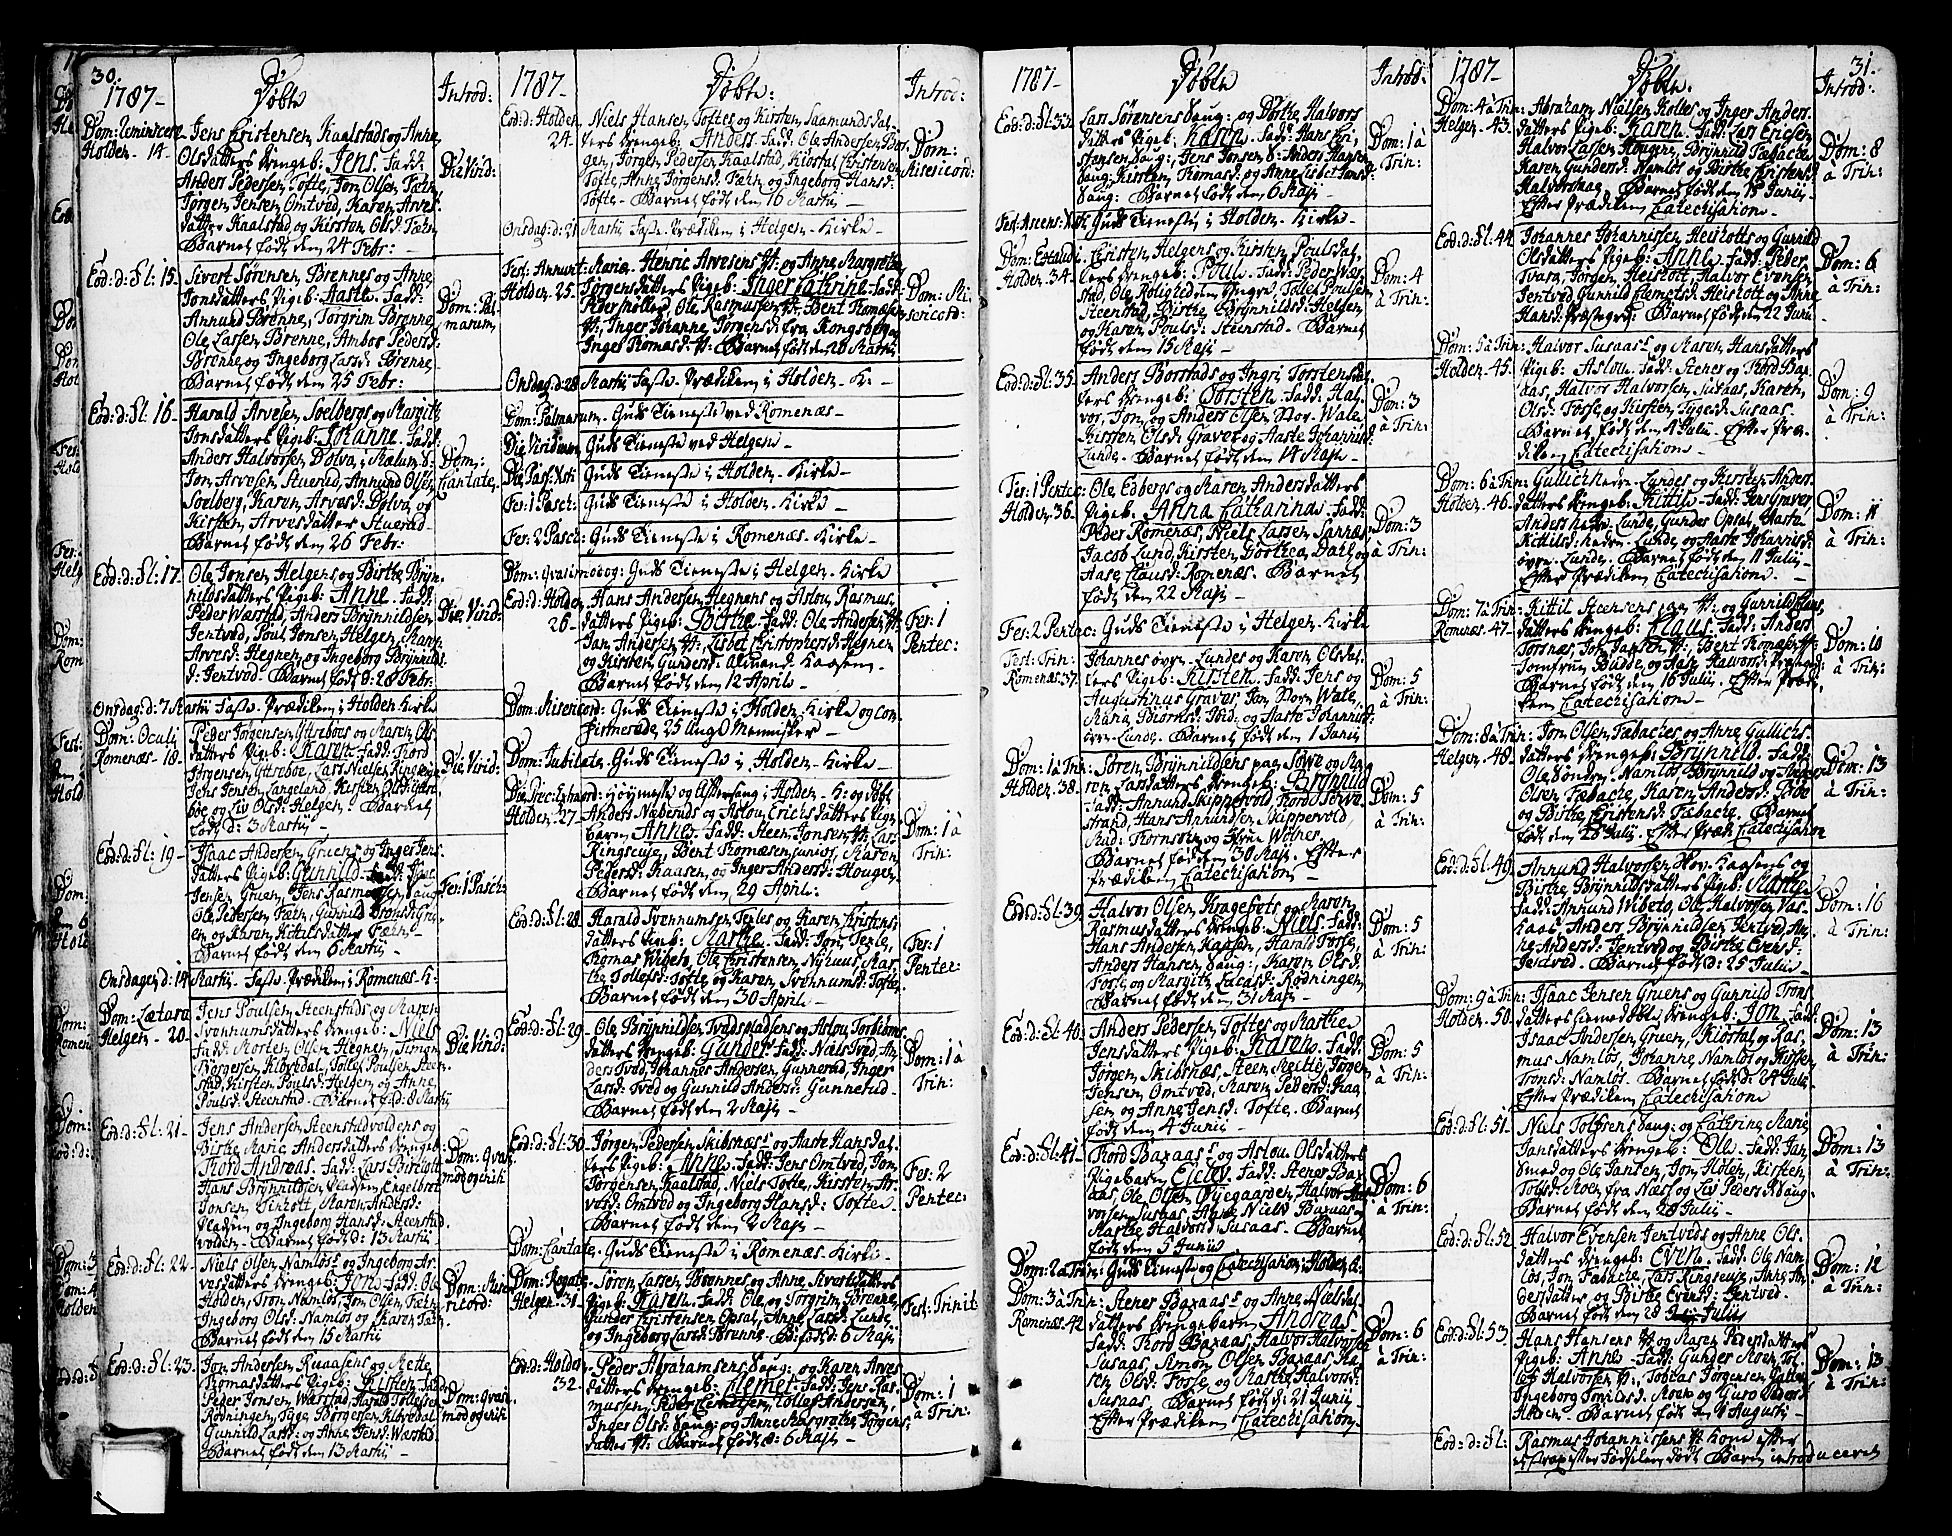 30.
1787-
Døbte
Introd:
Dom: Reminiscere
Holden - 14 -
Jens Christensen Kaalstads og Anne
Olsdatters Drengeb: Jens. Fadd:
Anders Pedersen Tofte, Jon Olsen Fæhn
Jørgen Jensen Omtved, Karen Arves-
datter Kaalstad og Kirsten Olsd: Fæhn
Barnet født den 24 Febr:
Die Virid:
Eod: d: Fl: 15
Sivert Sørensen Brønnes og Anne
Jonsdatters Pigeb: Aaste. Fadd:
Annund Brønne, Torgrim Brønne
Ole Larsen Brønne, Ambor Pedersd:
Brønne og Ingeborg Larsd: Brønne
Barnet født den 25 Febr:
Dom: Pal-
marum
Eod: d: Fl: 16
Harald Arvesen Soelbergs og Margith
Jonsdatters Pigeb: Johanne. Fadd:
Anders Halvorsen Dolva i Mælum S:
Jon Arvesen Stuerød, Annund Olsen
Soelberg, Karen Arvesd: Dolva og
Kirsten Arvesdatter Stuerød
Barnet født den 26 Febr:
Dom:
Cantate
Eod: d: Fl: 17
Ole Jonsen Helgens og Birthe Brynn-
hildsdatters Pigeb: Anne. Fadd:
Peder Wærstad, Anders Brynnildsen
Jentved, Poul Jonsen Helgen, Mari
Arvesd: Hegnen og Ingeborg Brynnilds-
d: Jentved - Barnet født d: 28 Febr:
Die Virid:
Onsdag d: 7 Martii Faste-Prædiken i Holden Kirke
Dom: Oculi
Romenæs - 18 -
Peder Jørgensen Ytterbøes og Maren Ols-
datters Pigeb: Maren. Fadd: Thord
Jørgensen Ytterbøe, Lars Nielsen Ringseyn
Jens Jensen Langeland, Kirsten Olsd: Ytter-
bøe og Liv Olsd: Helgen - Barnet
født d: 3 Martii -
Die Virid:
Eod: d: Fl: 19
Isaac Andersen Gruens og Inger Jens-
datters Pigeb: Gunnild - Fadd: Isaac
Jensen Gruen, Jens Rasmussen Saug
Ole Pedersen Fæhn, Gunnild Tronsd: Gru-
en og Karen Kittilsdatter Fæhn -
Barnet født den 6 Martii
Fer: 1 Pasch:
Onsdagen d: 14 Martii Faste-Prædiken i Romenæs K:
Dom: Lætare
Helgen - 20 -
Jens Poulsen Steenstads og Maren
Svennumsdatters Drengeb: Niels
Fadd: Morten Olsen Hegnen, Simon
Børgesen Klovedal, Tollef Poulsen Steen-
stad, Kirsten Poulsd: Helgen og Anne
Poulsd: Steenstad - Barnet født d: 8 Martii
Die Virid:
Eod: d: Fl: 21
Jens Andersen Steenstadvoldens og
Birthe Marie Andersdatters Drengeb:
Thord Andreas. Fadd: Lars Birkott
Hans Brynnildsen Vladsen, Engelbret
Jonsen Sinkott, Maren Andersd:
Vladsen og Ingeborg Hansd: Steenstad-
volden - Barnet født d: 13 Martii
Dom: Qvasi-
modogeniti
Eod: d: Fl: 22
Niels Olsen Namløs og Ingeborg Ar-
vesdatters Drengeb: Jon. Fadd: Ole
Holden, Tron Namløs, Jon Olsen Fæhn
Ingeborg Olsd: Namløs og Karen Fæhn
Barnet født den 15 Martii
Dom: Mise-
ricord:
Eod: d: Fl: 23
Jon Andersen Ruaasens og Mette
Thomasdatters Pigeb: Kirsten. Fadd:
Peder Jonsen Wærstad, Harald Tollefsen
Rødningen, Tyge Børgersen Klovedal
Gunnild Larsd: og Anne Jensd: Wærstad
Barnet født den 13 Martii
Dom: Qvasi-
modogeniti
1787-
Døbte:
Introd:
Eod: d: Holden
24.
Niels Hansen Toftes og Kirsten Saamundsdat-
ters Drengeb: Anders. Fadd: Ole Andersen Bor-
gen, Jørgen Pedersen Kaalstad, Kirstol Christensen
Tofte, Anne Jørgensd: Fæhn og Ingeborg Hansd:
Tofte - Barnet født den 16 Martii -
Dom:
Misericord:
Onsdag d: 21 Martii Faste-Prædiken i Helgen-Kirke
Fest: Annunt: Mariæ
Holden. 25 -
Henric Arvesens H: og Anne Margrethe
Jørgensdatters Pigeb: Inger Cathrine. Fadd:
Peder Møllad, Ole Rasmussen H: Bent Thomæsen
H: Inger Johanne Jørgensd: fra Kongsberg og
Inger Thomasd: H: Barnet født den 20 Martii
Dom: Mi-
sericord:
Onsdag d: 28 Martii Faste-Prædiken i Holden-K: -
Dom: Palmarum - Guds Tieneste ved Romenæs -
Die Viridium Guds Tieneste ved Helgen -
Die Pass: Xsti Guds Tieneste i Holden - Kirke -
Fer: 1 Pasch: Guds Tieneste i Holden - Kirke -
Fer: 2 Pasch: Guds Tieneste i Romenæs - Kirke -
Dom: Qvasimodog: Guds Tieneste i Helgen - Kirke
Eod: d: Holden
26 -
Hans Andersen Hegnens og Aslou Rasmus-
datters Pigeb: Dorthe. Fadd: Ole Andersen H:
Jan Andersen H: Lisbet Christophersd: Hegnen
og Kirsten Gundersd: Almand Kaasene -
Barnet født den 12 April -
Fer: 1
Pentec:
Dom: Misericord: Guds Tieneste i Holden Kirke og con-
firmerede 25 Unge Mennisker -
Dom: Jubilate Guds Tieneste i Holden - Kirke -
Die Prec: Extraord: Høymesse og Aftensang i Holden - K: og døbt
Holden. 27 -
Anders Næberuds og Aslou Erichsdatters Pige-
barn Anne. Fadd: Steen Jonsen H: Lars
Ringseyn, Bent Thomæsen junior, Maren
Pedersd: Kaasen og Inger Andersd: Hougen
Barnet født den 29 April:
Dom: 1 à
Trin:
Eod: d: Fl: 28
Harald Svennumsen Terles og Karen Christens-
datters Pigeb: Marthe. Fadd: Jon Terle,
Thomas Wibeto, Ole Christensen Nyhuus, Mar-
the Tollefsd: Tofte og Karen Svennumsd: Tofte
Barnet født den 30 April -
Fer: 1
Pentec:
Eod: d: Fl: 29
Ole Brynnildsen Tvedspladsens og Aslou Torbiørns-
datters Drengeb: Gunder. Fadd: Niels Tved, An-
ders Tved, Johannes Andersen Gunnerød, Inger
Larsd: Tved og Gunnild Andersd: Gunnerud -
Barnet født den 2 Maji -
Dom: 1 à
Trin:
Eod: d: Fl: 30
Jørgen Pedersen Skibsnæs og Aaste Hansdat-
ters Pigeb: Anne. Fadd: Jens Omtved, Jon
Jørgensen Kaalstad, Niels Tofte, Kirsten Ar-
vesd: Omtved og Ingeborg Hansd: Tofte -
Barnet født den 2 Maji -
Fer: 2
Pentec:
Dom: Cantate. Guds Tieneste i Romenæs Kirke -
Dom: Rogate
Helgen. 31 -
Søren Larsen Brønnes og Anne Sivertsdatters
Pigeb: Karen. Fadd: Ole og Torgrim Brønne,
Gunder Christensen Opsal, Anne Larsd: Lunde
og Ingeborg Larsd: Brønne. B: født d: 6 Maji
Fest: Trinit
Eod: d: Holden
32.
Peder Abrahamsens Saug: og Karen Arves-
datters Drengeb: Clemet. Fadd: Jens Ras-
mussen, Peder Clemetsen, Tollef Andersen,
Inger Olsd: Saug: og Anne Margrethe Jørgens-
datter H: Barnet født d: 6 Maji -
Dom: 1
à Trin:
1787-
Døbte
Introd:
Eod: d: Fl: 33
Lars Sørensens Saug: og Dorthe Halvors
datters Pigeb: Karen. Fadd: Hans Chri-
stensen Saug:, Jens Jonsen S: Anders Hansen
Saug:, Kirsten Thomasd: og Anne Lisbet Jonsd:
Saug: Barnet født den 6 Maji -
Dom: 1 à
Trin:
Fest: Ascens: Xsti Guds Tieneste i Holden - Kirke
Dom: Exaudi
Holden. 34 -
Christen Helgens og Kirsten Poulsdat-
ters Drengeb: Poul. Fadd: Peder Wær-
stad, Ole Rolighed den Yngre, Tollef Poulsen
Steenstad, Birthe Brynnildsd: Helgen
og Karen Poulsd: Steenstad - Barnet
født den 15 Maji -
Dom: 4
à Trin:
Eod: d: Fl: 35
Anders Borstads og Ingri Torstensdat-
ters Drengeb: Torsten. Fadd: Hal-
vor, Jon og Anders Olsen Nor-Wala
Kirsten Olsd: Graver og Aaste Johannisd:
Lunde. Barnet født den 14 Maji -
Dom: 3
à Trin:
Fer: 1 Pentec:
Holden. 36 -
Ole Edbergs og Maren Andersdatters
Pigeb: Anna Catharina. Fadd:
Peder Romenæs, Niels Larsen Sannæs
Jacob Lund, Kirsten Dorthea Dahl og
Aase Clausd: Romenæs. Barnet
født den 22 Maji -
Dom: 3
à Trin:
Fer: 2 Pentec: Guds Tieneste i Helgen - Kirke
Fest: Trin:
Romenæs. 37 -
Johannes øvre - Lundes og Karen Olsdat-
ters Pigeb: Kirsten. Fadd: Jens og
Augustinus Graver, Jon Norn Wale,
Maria Biørnsd: Ibid: og Aaste Johannisd:
øvre-Lunde. Barnet født den 1 Junii
Dom: 5
à Trin:
Dom: 1 à Trin:
Holden. 38 -
Søren Brynnildsens paa Søwe og Ma-
ren Larsdatters Drengeb: Brynnild
Fadd: Annund Skippervold, Thord Søeve-
strand, Hans Annundsen Skippervold,
Mad: Thornsohn og Jfrue Wolner
Barnet født den 30 Maji. Efter
Prædiken Catechisation -
Dom: 5
à Trin:
Eod: d: Fl: 39
Halvor Olsen Kragefots og Maren
Rasmusdatters Drengeb: Niels. Fadd:
Hans Andersen Kaasen, Harald Forse,
Anders Hansen Saug:, Karen Olsd:
Forse og Margith Lucasd: Rødningen
Barnet født den 31 Maji -
Dom: 5
à Trin:
Eod: d: Fl: 40
Anders Pedersen Toftes og Marthe
Jensdatters Pigeb: Karen. Fadd:
Jørgen Skibsnæs, Steen Meitie, Jørgen
Jensen Omtved, Maren Pedersd: Kaa-
sen og Anne Jensd: Tofte. Barnet
født den 4 Junii -
Dom: 5
à Trin:
Eod: d: Fl: 41
Thord Baxaas og Aslou Olsdatters
Pigebarn Eielev. Fadd: Stener Bax-
aas, Ole Olsen Dyregaarden, Halvor Hal-
vorsen Susaas, Anne Nielsd: Baxaas og
Marthe Halvorsd: Susaas. Barnet
født den 5 Junii
Dom: 6
à Trin:
Dom: 2 à Trin: Guds Tieneste og Catechisation i Holden K:
Dom: 3 à Trin:
Romenæs. 42
Stener Baxaas og Anne Nielsdat-
datters Drengebarn Andreas.
Fadd: Thord Baxaas, Halvor Halvorsen
Susaas, Simon Olsen Baxaas, Ma-
ren Olsd: Forse og Marthe Halvorsd:
Susaas. Barnet født d: 21 Junii
Efter Prædiken Catechisation.
Dom: 6
à Trin:
1787-
Døbte.
31.
Introd:
Dom: 4 à Trin:
Helgen. 43.
Abraham Nielsen Holtes og Inger Anders
datters Pigeb: Karen. Fadd: Lars Ericsen
Halvor Lassen Hougene, Brynnild Fæbache
Karen Gundersd: Namløs og Birthe Christensd:
Halvorshaag. Barnet født den 18 Junii
Efter Prædiken Catechisation.
Dom: 8
à Trin:
Eod: d: Fl: 44
Johannes Johannissen Heisholts og Gunnild
Olsdatters Pigeb: Anne. Fadd: Peder
Tvara, Jørgen Heisholt, Halvor Evensen
Jentved, Gunnild Clemetsd: Heisholt og Anne
Hansd: Præstegrd: Barnet født den 22 Junii
Dom: 6
à Trin:
Dom: 5 à Trin:
Holden. 45.
Halvor Susaas og Maren Hansdatters
Pigeb: Aslou. Fadd: Stener og Thord Bax-
aas, Halvor Halvorsen Susaas, Karen
Olsd: Forse og Kirsten Tygesd: Susaas.
Barnet født den 1 Julii - Efter Præ-
diken Catechisation.
Dom: 9
à Trin:
Dom: 6 à Trin:
Holden. 46.
Gullich nedre-Lundes og Kirsten Anders-
datters Drengeb: Kittil. Fadd: Jens Graver,
Anders nedre Lunde, Gundes Opsal, Marthe
Kittilsd: nedre-Lunde og Aaste Johannisd:
øvre-Lunde. Barnet født den 11 Julii
Efter Prædiken Catechisation. -
Dom: 11
à Trin:
Dom: 7 à Trin:
Romenæs. 47 -
Kittil Steensens paa H: og Gunnild Hans
datters Drengeb: Claus. Fadd: Anders
Torsnæs, Jon Jansen H: Bent Thomæsen H:
Jomfrue Budde og Aase Halvorsd: Vrangen
Barnet født den 16 Julii. Efter Præ-
diken Catechisation -
Dom: 10
à Trin:
Dom: 8 à Trin:
Helgen. 48.
Jon Olsen Fæbaches og Anne Gullichs-
datters Drengeb: Brynnild. Fadd:
Ole Søndre Namløs, Brynnild og Anders
Olsen Fæbache, Karen Andersd: Ibid:
og Birthe Christensd: Fæbache. Barnet
født den 28 Julii. Efter Præd: Catechisation
Dom: 13
à Trin:
Eod: d: Fl: 49
Annund Halvorsen Nor. Kaasens og
Birthe Brynnildsdatters Pigeb: Marthe
Fadd: Annund Wibeto, Ole Halvorsen Vas-
haas, Anders Brynnildsen Jentved, An-
ne Andersd: Jentved og Birthe Evensd:
Jentved. Barnet født d: 25 Julii -
Dom: 16
à Trin:
Dom: 9 à Trin:
Holden. 50.
Isaac Jensen Gruens og Gunnild Trons
datters hiemedøbte Drengeb: Jon. Fadd:
Isaac Andersen Gruen, Kirstol og Ras-
mus Namløs, Johanne Namløs og Kirsten
Tronsd: Namløs. Barnet født d: 24 Julii
Efter Prædiken Catechisation
Dom: 13
à Trin:
Eod: d: Fl: 51 -
Niels Tolfsens Saug: og Cathrine Marie
Jansdatters Drengeb: Ole. Fadd: Jan
Smed og Ole Jansen, Jon Holen, Kirsten
Tolfsd: Moen fra Næss og Liv Pedersd: Saug
Barnet født den 28 Julii -
Dom: 13
à Trin:
Eod: d: Fl: 52
Halvor Evensen Jentveds og Anne Ols-
datters Drengeb: Even. Fadd: Ole Nam-
løs, Jon Fæbache, Lars Ringseyn, Anne An-
dersdatter og Birthe Evensd: Jentved.
Barnet født den 28 Julii
Dom: 12
à Trin:
Eod: d: Fl: 53
Hans Hansens H: og Maren Pedersdatters
Pigeb: Anne - Fadd: Gunder Moen, Tol-
lef Halvorsen H:, Tobias Jørgensen Galten
Ingeborg Tomilsd: Moen og Guro Pedersd:
Moen. Barnet født den 1 Augusti -
Dom: 13
à Trin:
Eod: d: Fl:
Rasmus Johannissens H: Kone efter
et strax efter Fødselen dødt Barn introduceret